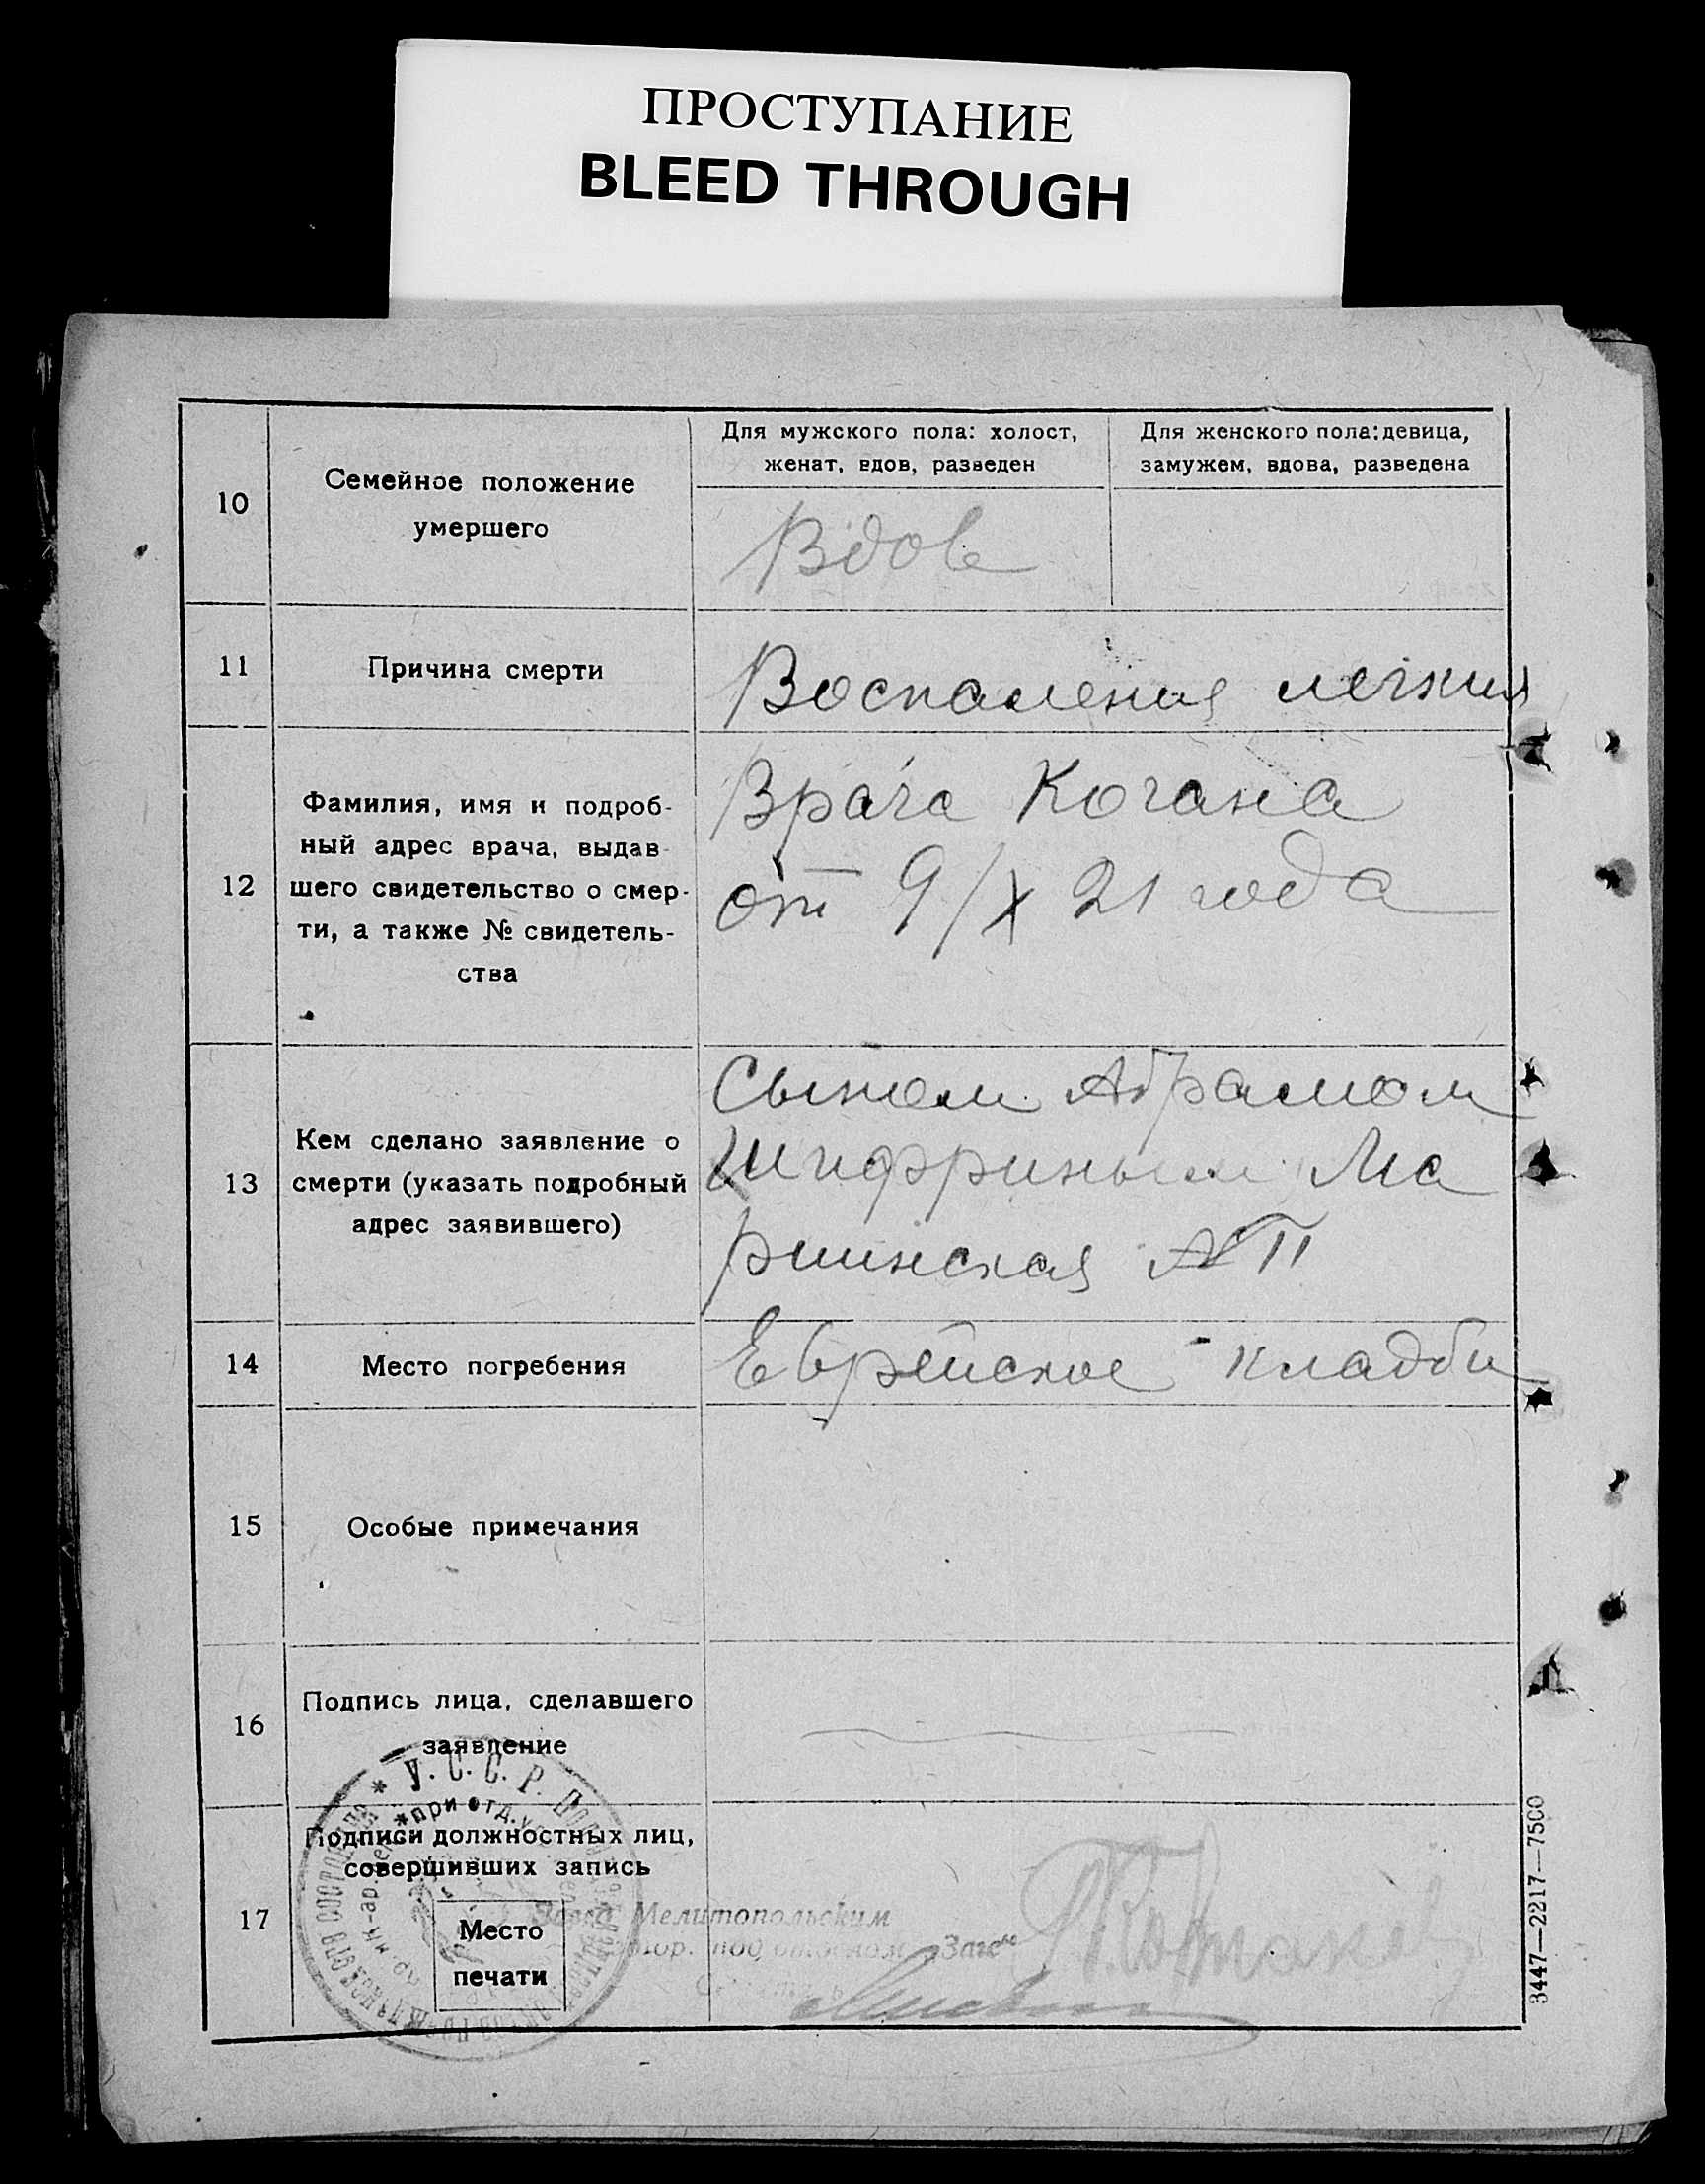 ПРОСТУПАНИЕ
BLEED THROUGH
10
Семейное положение
умершего
Для мужского пола: холост,
женат, вдов, разведен
Для женского пола: девица,
замужем, вдова, разведена
Вдов
11
Причина смерти
Воспаления легких
12
Фамилия, имя и подроб-
ный адрес врача, выдав-
шего свидетельство о смер-
ти, а также № свидетель-
ства
Врача Когана
от 9/X 21 года
13
Кем сделано заявление о
смерти (указать подробный
адрес заявившего)
Сыном Абрамом
Шифриным Ма
риинская
14
Место погребения
Еврейское кладби
15
Особые примечания
16
Подпись лица, сделавшего
заявление
17
Подписи должностных лиц,
совершивших запись
Место
печати
У. С. С. Р.
при отд.
Мелитопольским
под отделом Загс
3447—2217—7500